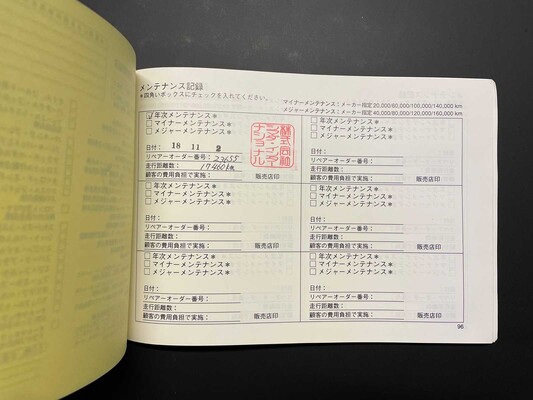 メンテナンス記録
*四角いボックスにチェックを入れてください。
マイナーメンテナンス：メーカー指定 20,000/60,000/100,000/140,000 km
メジャーメンテナンス：メーカー指定 40,000/80,000/120,000/160,000 km
年次メンテナンス*
マイナーメンテナンス*
メジャーメンテナンス*
日付： 18 11 2
リペアーオーダー番号： 23655
走行距離数： 17,460km
顧客の費用負担で実施： 販売店印
株式会社
ナショナル
年次メンテナンス*
マイナーメンテナンス*
メジャーメンテナンス*
日付：
リペアーオーダー番号：
走行距離数：
顧客の費用負担で実施： 販売店印
年次メンテナンス*
マイナーメンテナンス*
メジャーメンテナンス*
日付：
リペアーオーダー番号：
走行距離数：
顧客の費用負担で実施： 販売店印
年次メンテナンス*
マイナーメンテナンス*
メジャーメンテナンス*
日付：
リペアーオーダー番号：
走行距離数：
顧客の費用負担で実施： 販売店印
年次メンテナンス*
マイナーメンテナンス*
メジャーメンテナンス*
日付：
リペアーオーダー番号：
走行距離数：
顧客の費用負担で実施： 販売店印
年次メンテナンス*
マイナーメンテナンス*
メジャーメンテナンス*
日付：
リペアーオーダー番号：
走行距離数：
顧客の費用負担で実施： 販売店印
96